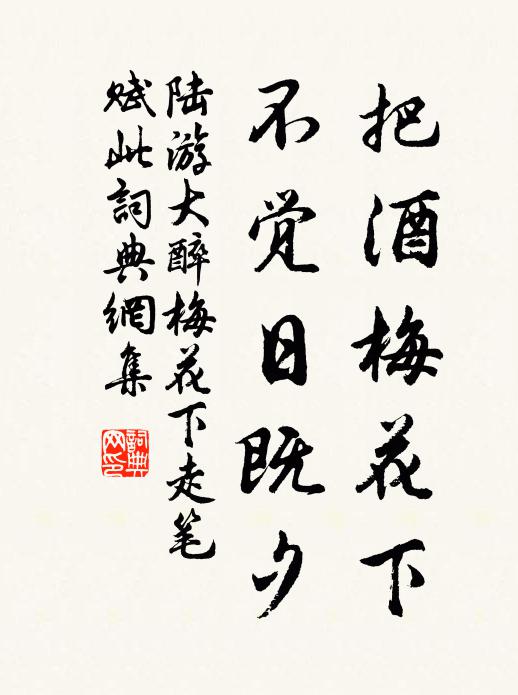 把酒梅花下
不觉日既夕
陆游大醉梅花下走笔
赋此詞典網集
詞典网印